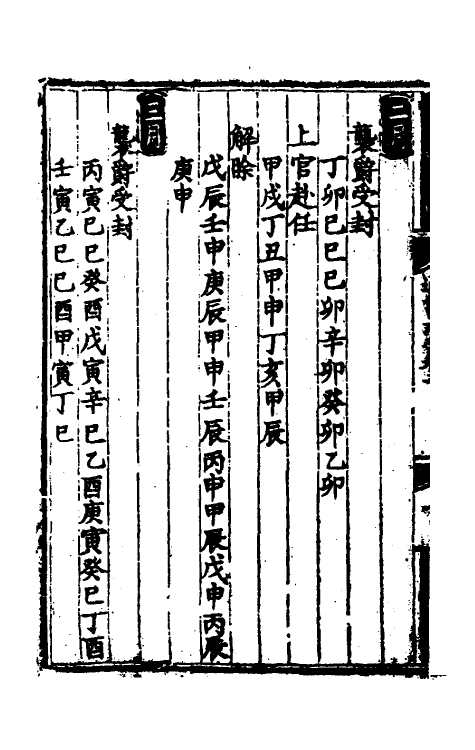 二月
襲爵受封
丁卯己巳己卯辛卯癸卯乙卯
上官赴任
甲戌丁丑甲申丁亥甲辰
解除
戊辰壬申庚辰甲申壬辰丙申甲辰戊申丙辰
庚申
三月
襲爵受封
丙寅己巳癸酉戊寅辛巳乙酉庚寅癸巳丁酉
壬寅乙巳己酉甲寅丁巳